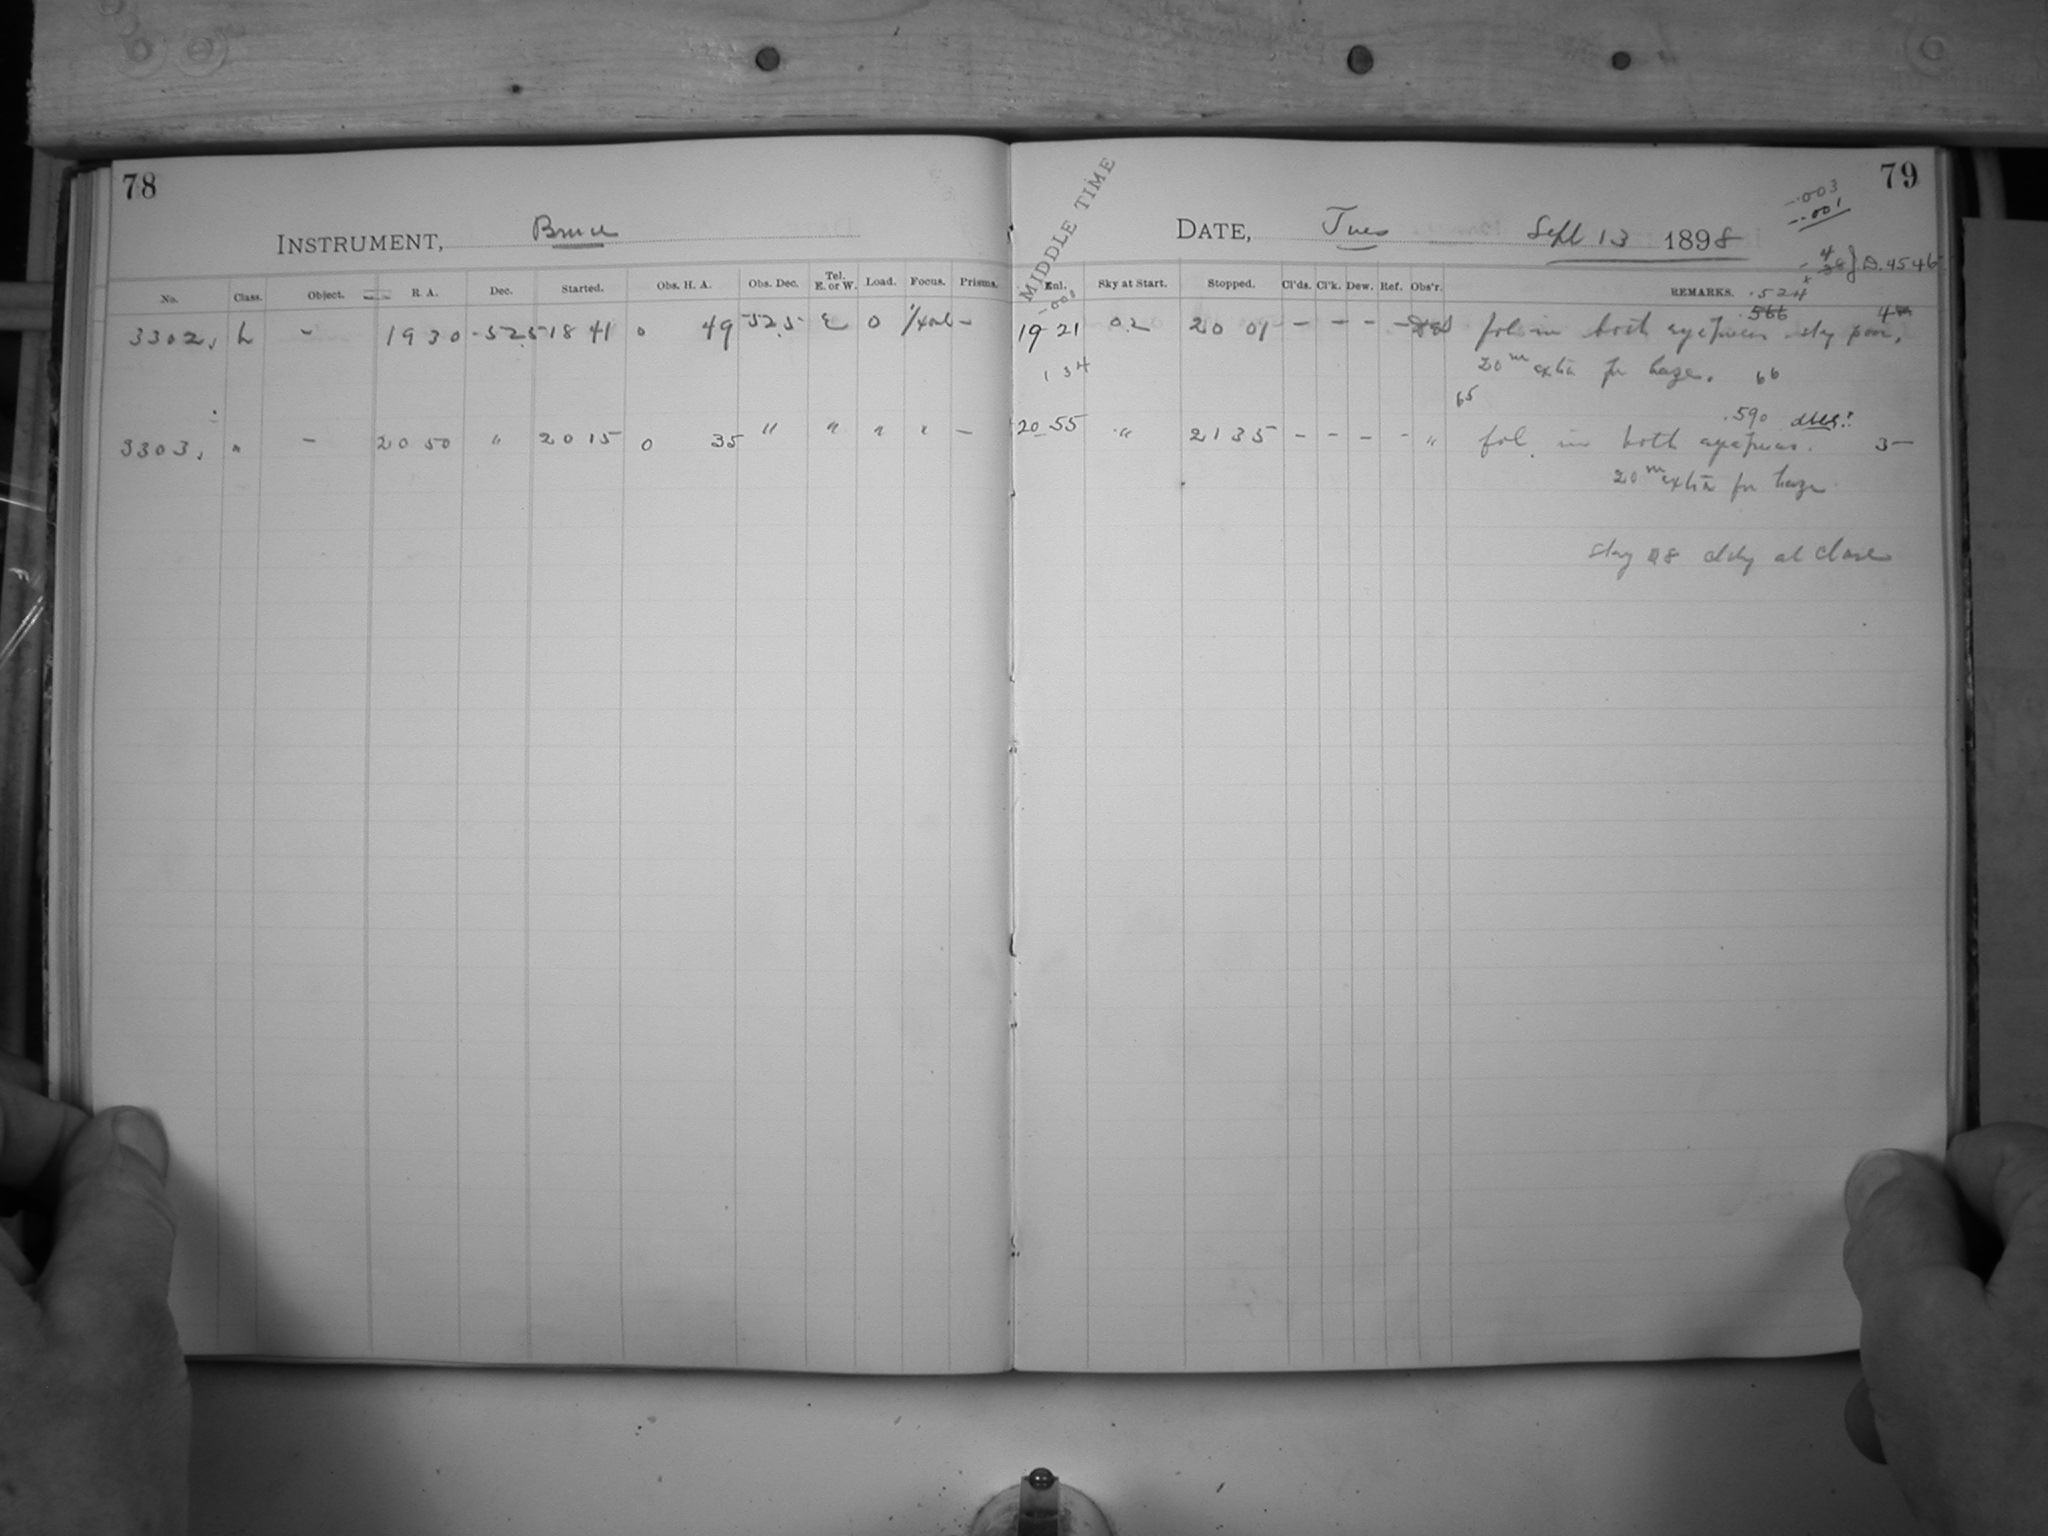 78
INSTRUMENT, Bruce
No. Class. Object. R. A. Dec. Started. Obs. H. A. Obs. Dec. Tel. E. or W. Load. Focus. Prisms.
3302, L - 19 30 -52.5 18 41 0 49 -52.5 E 0 -
3303, " - 20 50 " 20 15 0 35 " " " " -
MIDDLE TIME
79
-.003
-.001
DATE, Tues Sept 13 1898
D. 4546
Exl. Sky at Start. Stopped. Cl'ds. Cl'k. Dew. Ref. Obs'r. REMARKS. .524
.566
19 21 0.2 20 01 - - - - fol. in both eyepieces sky poor,
1 34 20m extra for haze. 66
65
.590
20 55 " 21 35 - - - - " fol. in both eyepieces. 3-
20m extra for haze
sky 08 cldy at close